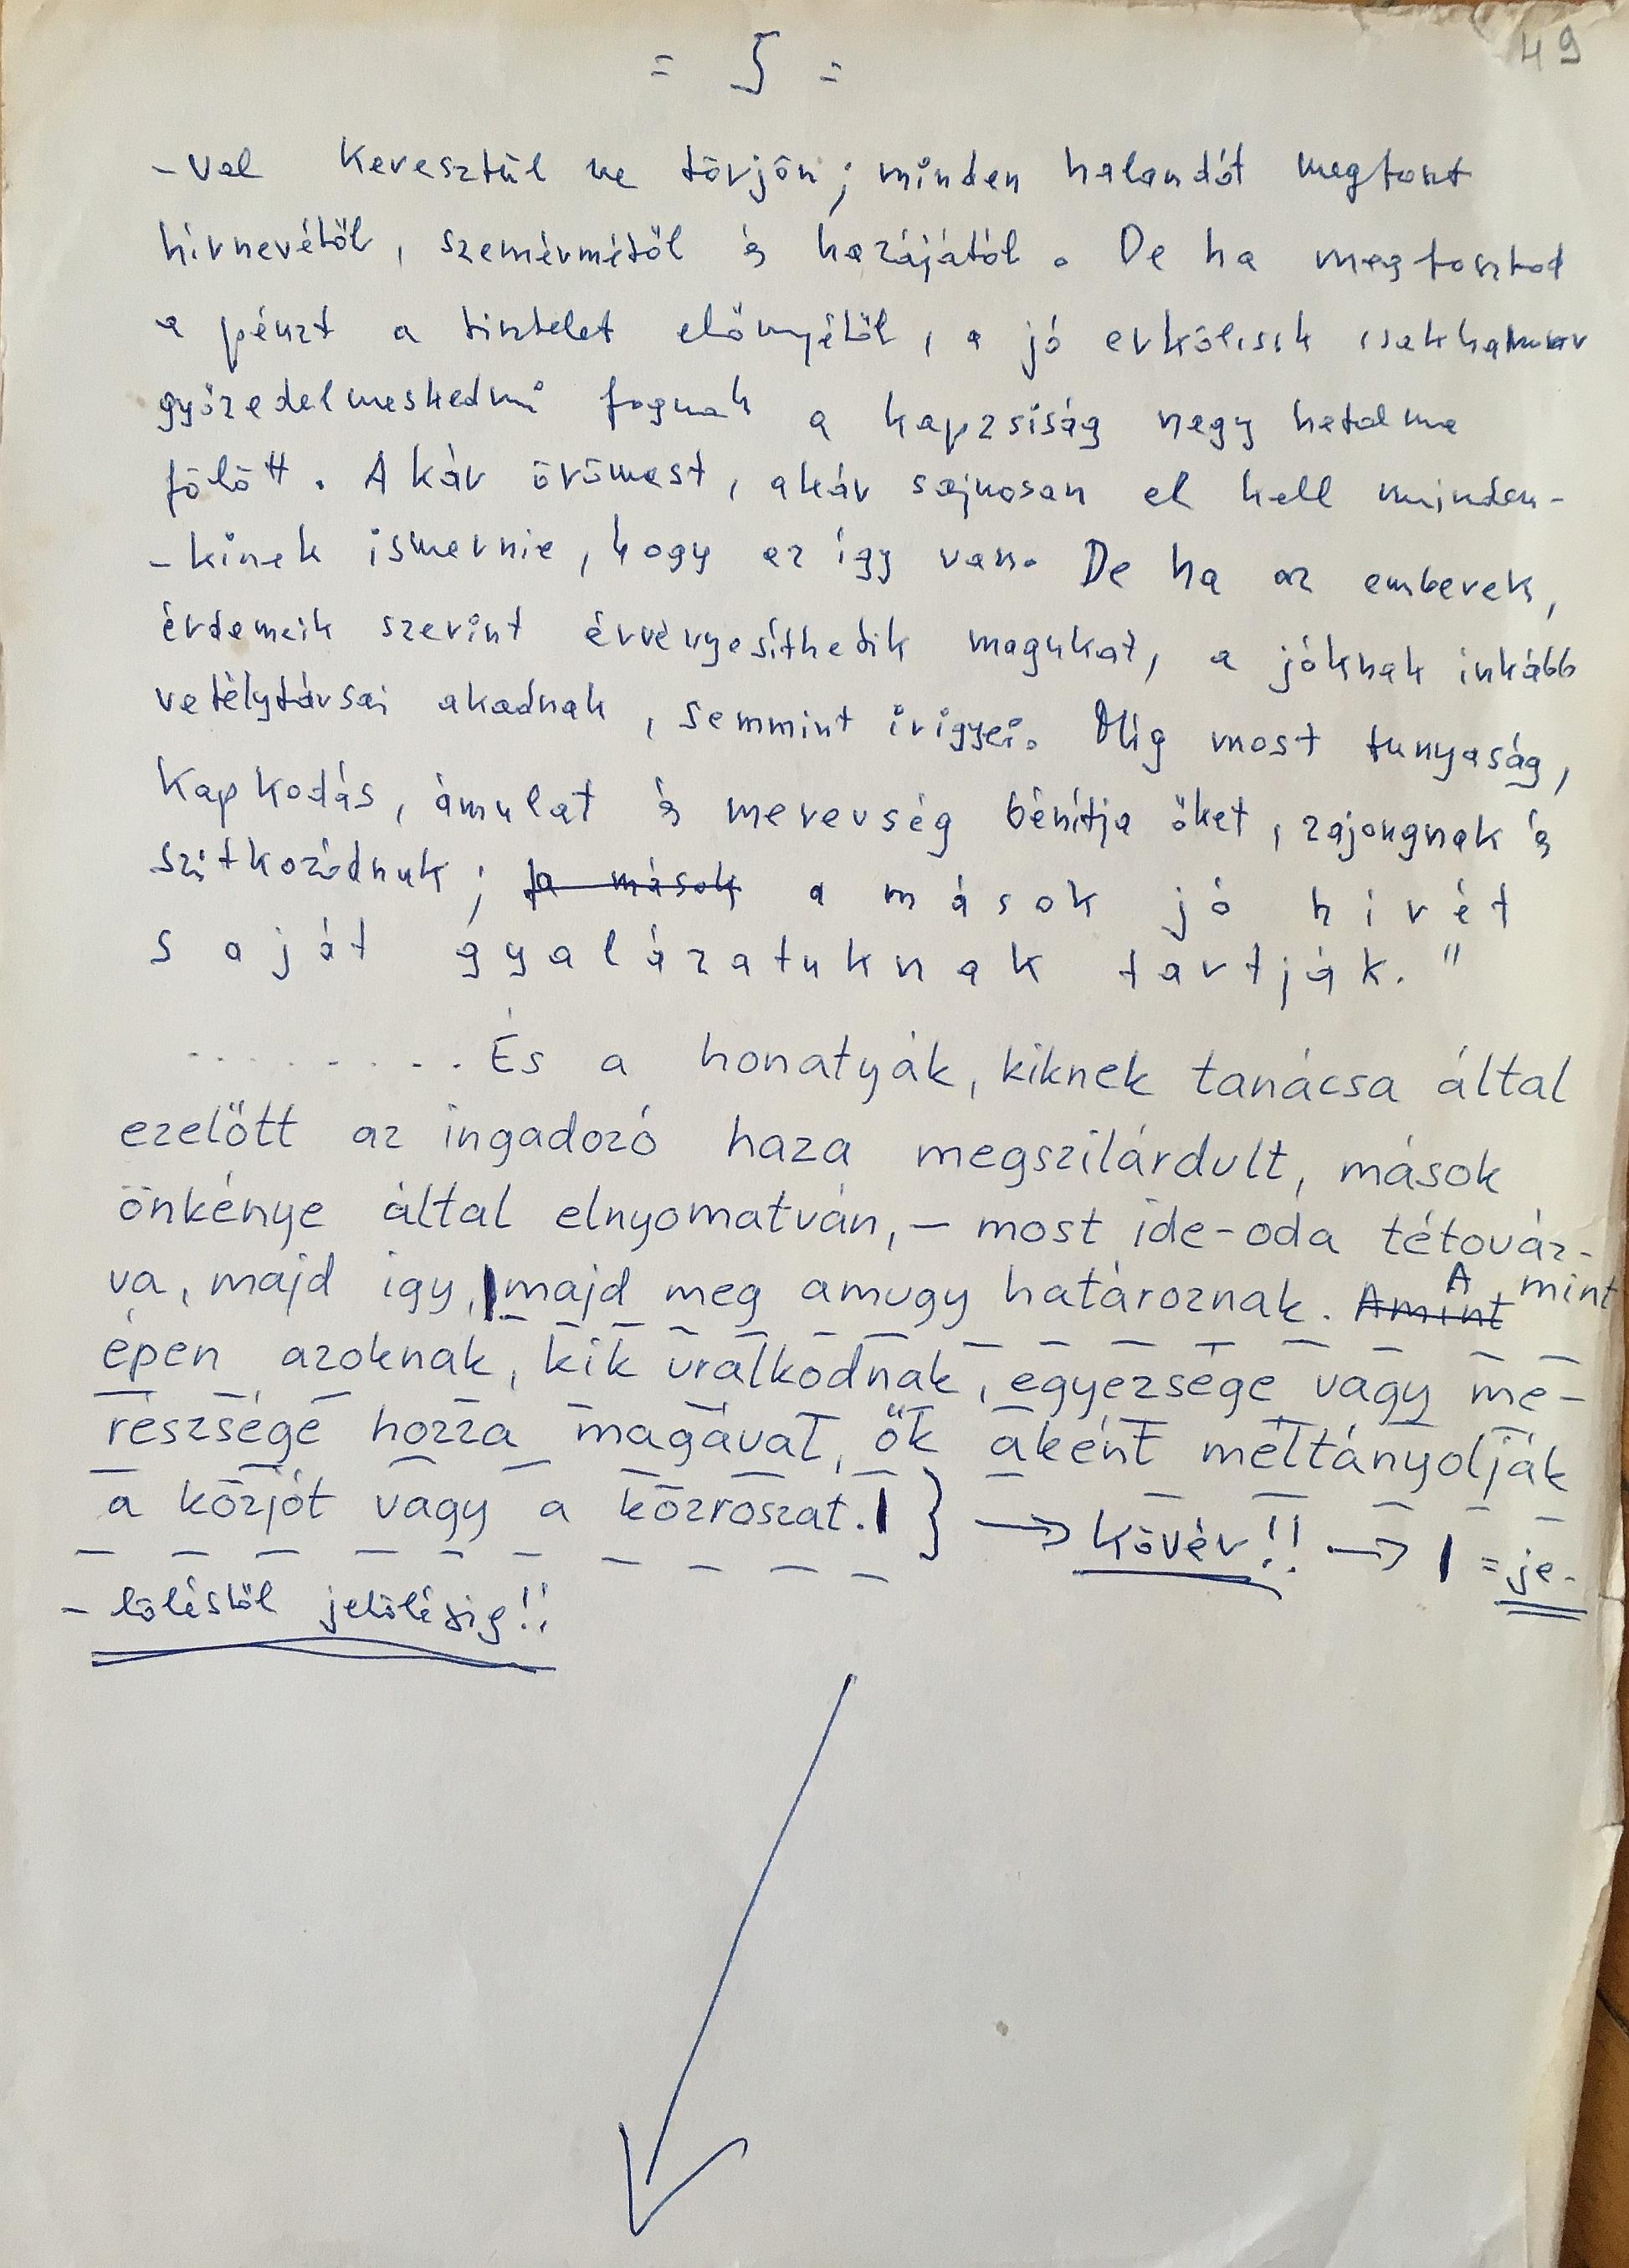 49
= 5 =
-val keresztül ne törjön; minden halandót megfoszt
hírnevétől, szemérmétől és hazájától. De ha megfosztod
a pénzt a tisztelet előnyétől, a jó erkölcsök csakhamar
győzedelmeskedni fognak a kapzsiság nagy hatalma
fölött. Akár örömest, akár sajnosan el kell minden-
-kinek ismernie, hogy ez így van. De ha az emberek,
érdemeik szerint érvényesíthetik magukat, a jóknak inkább
vetélytársai akadnak, semmint irigyei. Míg most tunyaság,
kapkodás, ámulat és merevség bénítja őket, zajongnak és
szitkozódnak; ja mások a mások jó hirét
saját gyalázatuknak tartják."
......... És a honatyák, kiknek tanácsa által
ezelőtt az ingadozó haza megszilárdult, mások
önkénye által elnyomatván, – most ide-oda tétováz-
va, majd igy, | majd meg amugy határoznak. Amint A mint
épen azoknak, kik uralkodnak, egyezsége vagy me-
részsége hozza magával, ők aként méltányolják
a közjót vagy a közroszat. | } → kövér!! → | = je-
-löléstől jelölésig!!